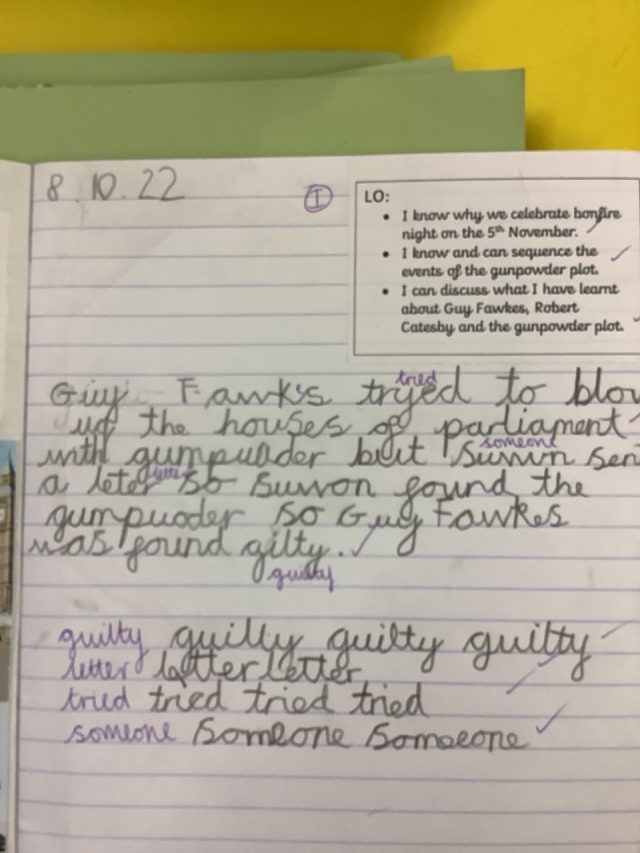 8.10.22
I
LO:
• I know why we celebrate bonfire
night on the 5th November.
• I know and can sequence the
events of the gunpowder plot.
• I can discuss what I have learnt
about Guy Fawkes, Robert
Catesby and the gunpowder plot.
tried
Guy Fawk's tryed to blow
up the houses of parliament
someone
with gumpuader but sumun sen
a leter so sumon found the
gumpuoder so Guy Fawkes
was found gilty.
guilty
guilty guilty guilty guilty
letter letter letter
tried tried tried tried
someone someone someone